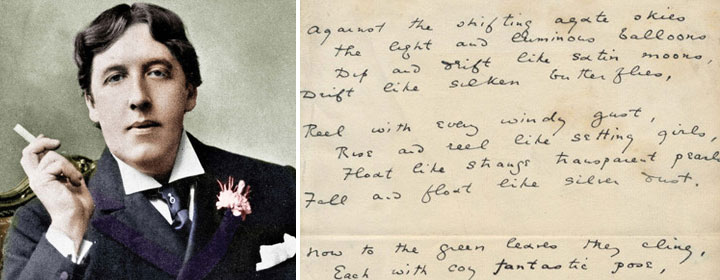 Against the shifting agate skies
The light and luminous balloons
Dip and drift like satin moons,
Drift like silken butterflies,
Reel with every windy gust,
Rise and reel like girls,
Float like strange transparent pearls
Fall and float like silver dust.
Now to the green leaves they cling,
Each with coy fantastic pose,